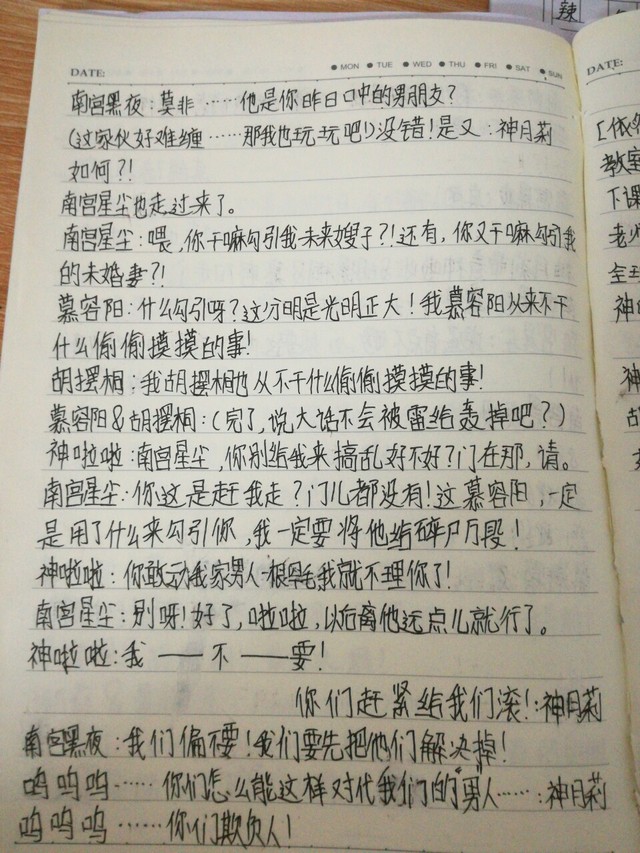 辣
DATE:
● MON ● TUE ● WED ● THU ● FRI ● SAT ● SUN
DATE:
南宫黑夜:莫非……他是你昨日口中的男朋友?
(这家伙好难缠……那我也玩玩吧!)没错!是又:神月莉
如何?!
南宫星尘也走过来了。
南宫星尘:喂,你干嘛勾引我未来嫂子?!还有,你又干嘛勾引我
的未婚妻?!
慕容阳:什么勾引呀?这分明是光明正大!我慕容阳从来不干
什么偷偷摸摸的事!
胡摆桐:我胡摆桐也从不干什么偷偷摸摸的事!
慕容阳&胡摆桐:(完了,说大话不会被雷给轰掉吧?)
神啦啦:南宫星尘,你别给我来搞乱好不好?门在那,请。
南宫星尘:你这是赶我走?门儿都没有!这慕容阳,一定
是用了什么来勾引你,我一定要将他给碎尸万段!
神啦啦:你敢动我家男人一根毛我就不理你了!
南宫星尘:别呀!好了,啦啦,以后离他远点儿就行了。
神啦啦:我——不——要!
你们赶紧给我们滚!:神月莉
南宫黑夜:我们偏不要!我们要先把他们解决掉!
呜呜呜……你们怎么能这样对代我们的男人……:神月莉
呜呜呜……你们欺负人!
[依
教室
下课
老师
神
神
胡